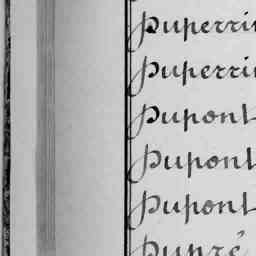 Duperri
Duperri
Dupont
Dupont
Dupont
Dupré